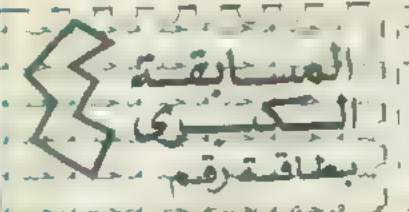 المسابقة
الكبرى
بطاقة رقم
٤